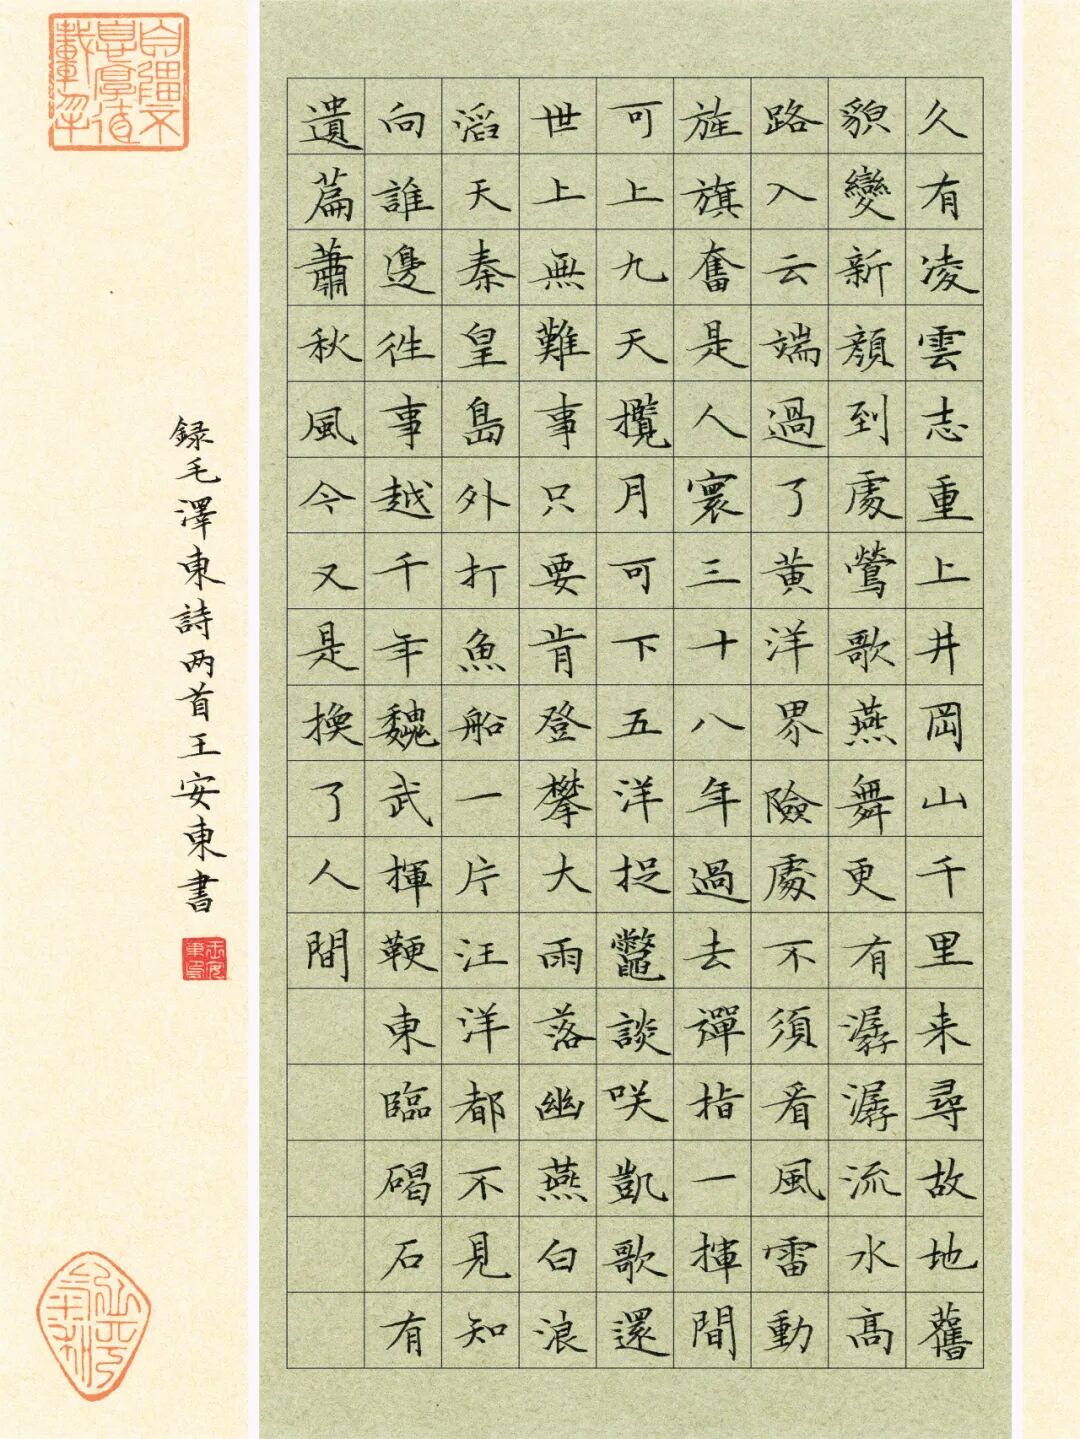 久有凌雲志重上井岡山千里来尋故地舊
貌變新顔到處鶯歌燕舞更有潺潺流水高
路入云端過了黄洋界險處不須看風雷動
旌旗奮是人寰三十八年過去彈指一揮間
可上九天攬月可下五洋捉鼈談咲凱歌還
世上無難事只要肯登攀大雨落幽燕白浪
滔天秦皇島外打魚船一片汪洋都不見知
向誰邊往事越千年魏武揮鞭東臨碣石有
遺篇蕭秋風今又是換了人間
録毛澤東詩两首王安東書
王安東印
自彊不息厚德載物
心平氣和